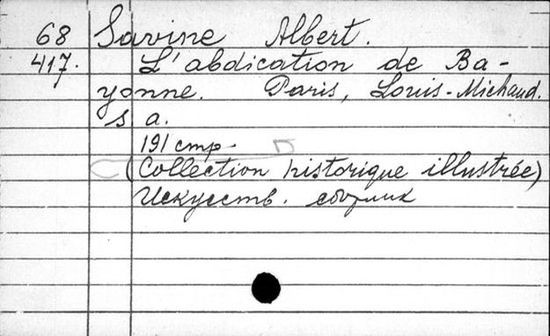 68 Savine Albert.
417. L'abdication de Ba-
yonne. Paris, Louis-Michaud.
s a.
191 стр.
(Collection historique illustrée)
Искусств. сборник